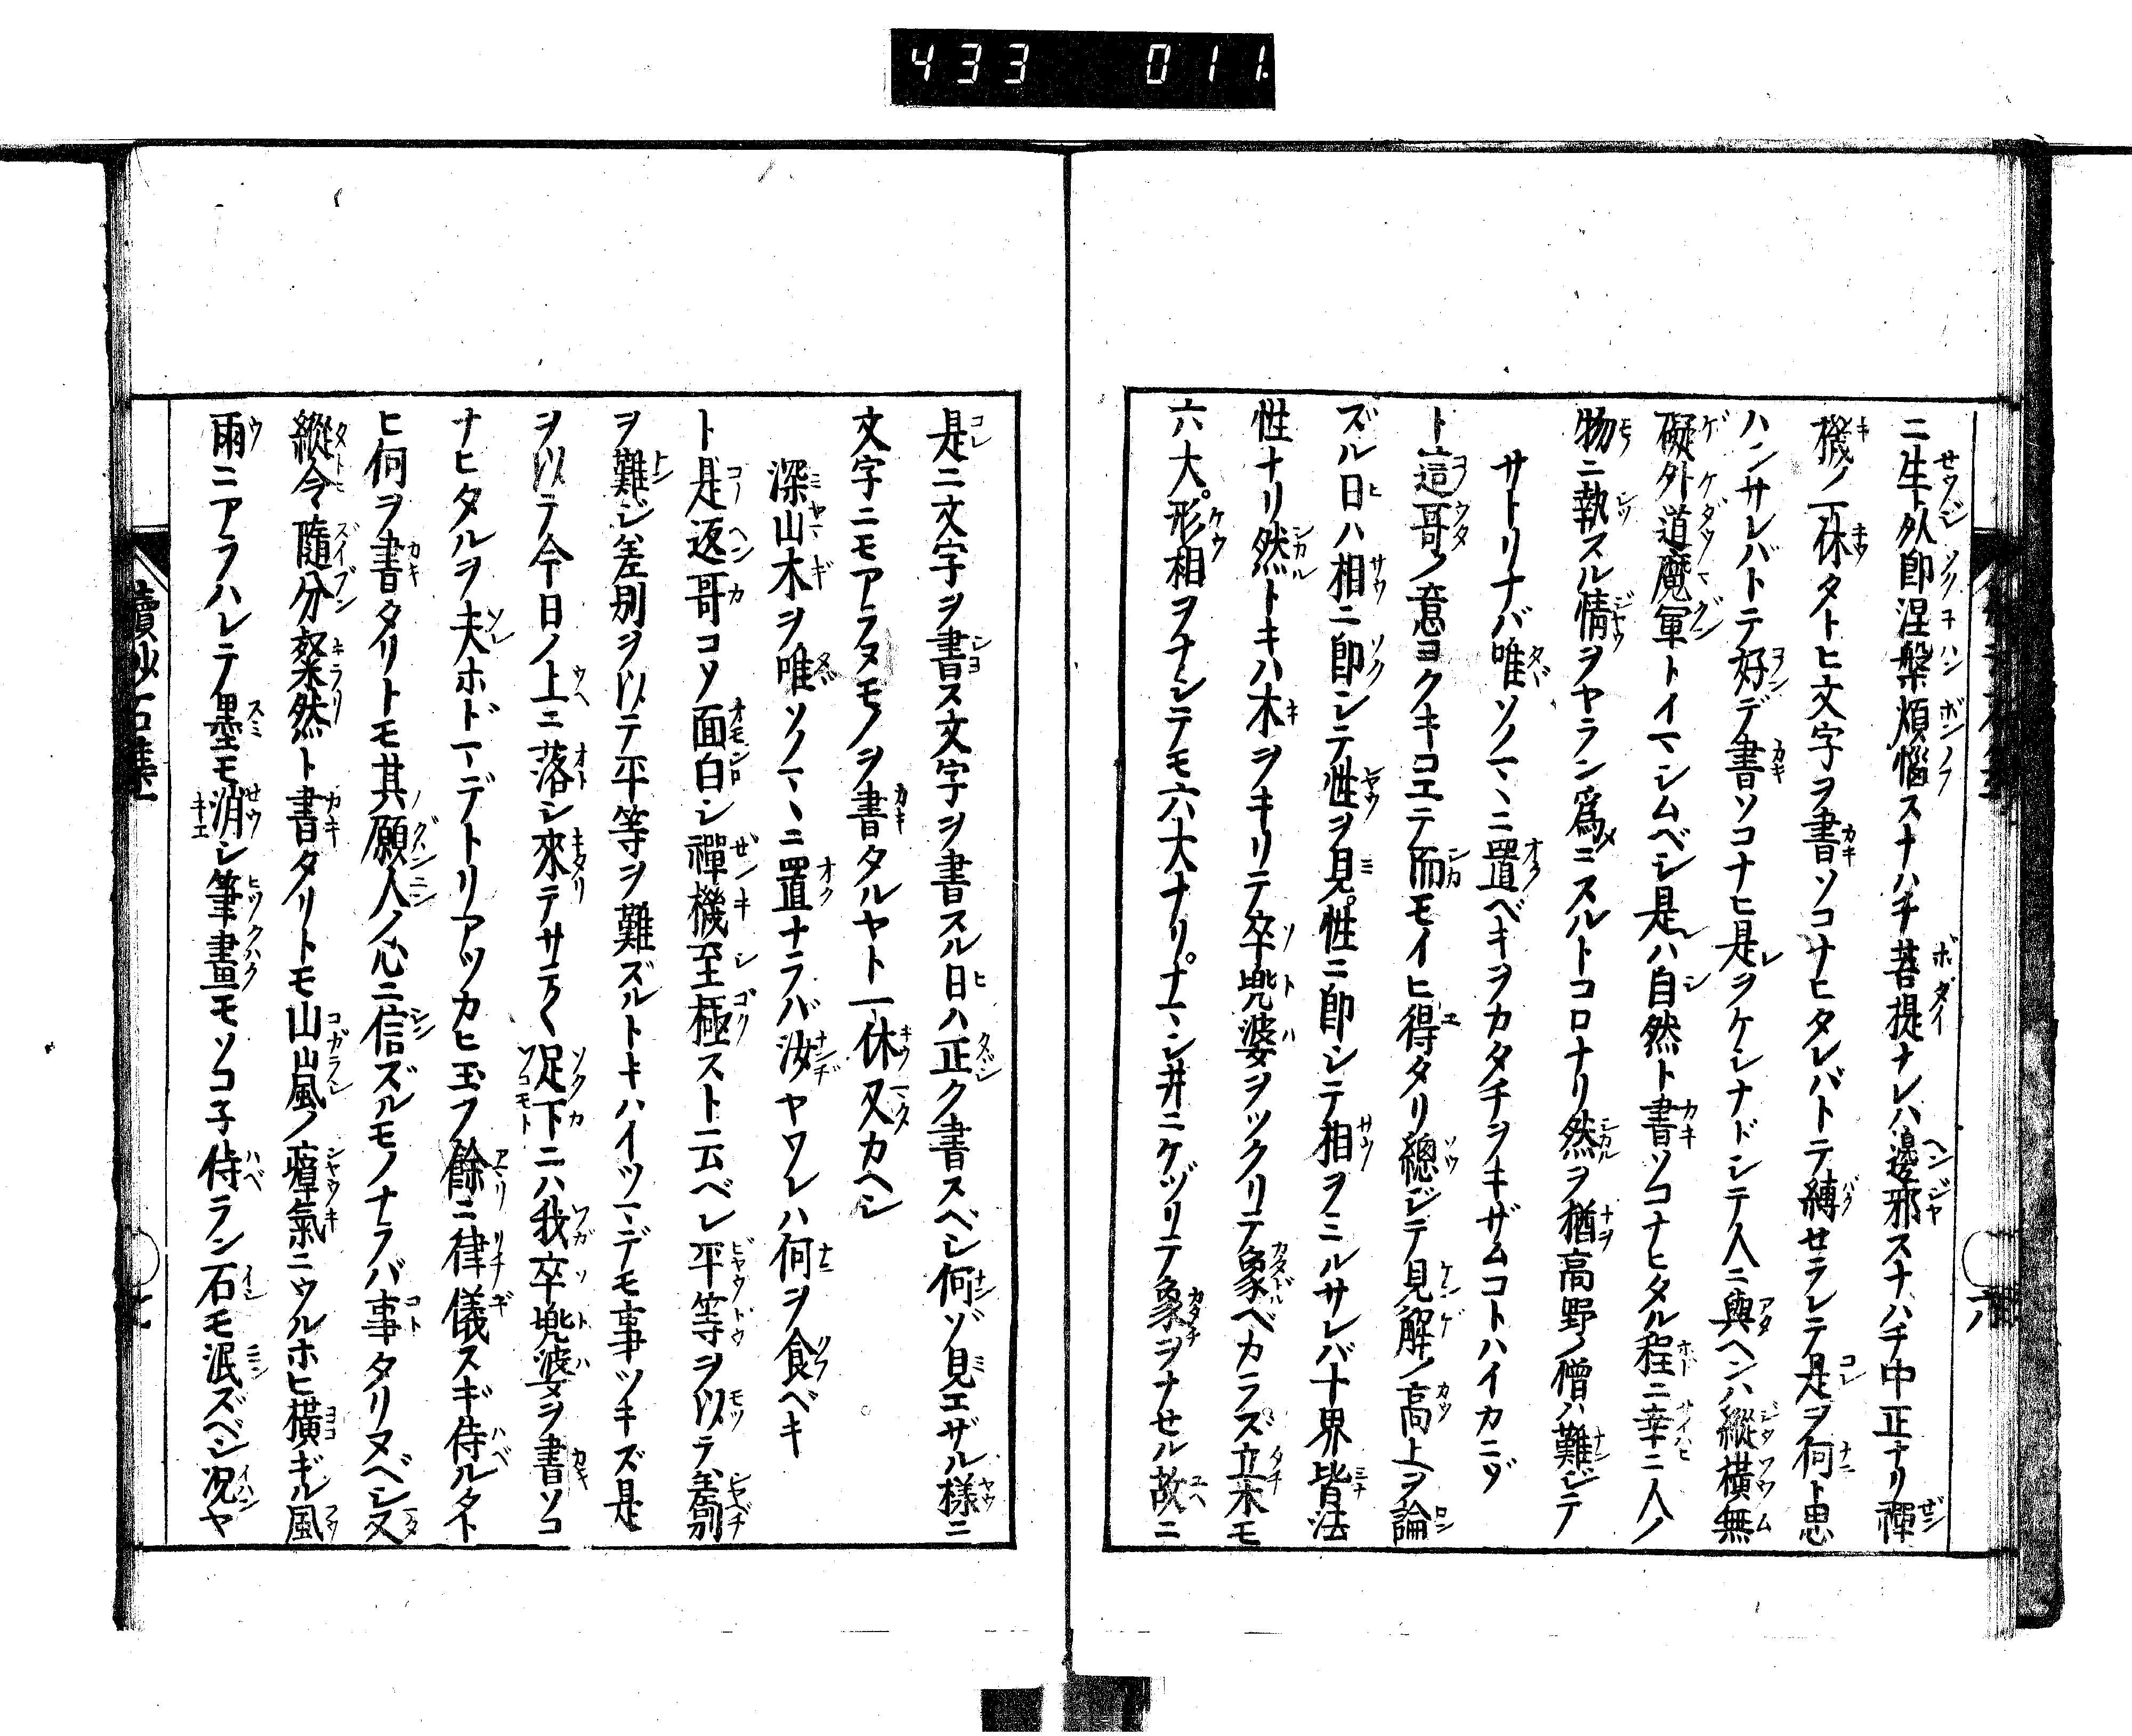 433 011
ニ生卜外即涅槃煩惱スナハチ菩提ナレハ邊邪スナハチ中正ナリ禪
機ノ一休タトヒ文字ヲ書ソコナヒタレバトテ縛セラレテ是ヲ何ト思
ハンサレバトテ好デ書ソコナヒ是ヲケシナドシテ人ニ與ヘンハ縱橫無
礙外道魔軍トイマシムベシ是ハ自然ト書ソコナヒタル程ニ幸ニ人ノ
物ニ執スル情ヲヤラン爲ニスルトコロナリ然ヲ猶高野ノ僧ハ難ジテ
サトリナバ唯ソノマヽニ置ベキヲカタチヲキザムコトハイカニゾ
ト這哥ノ意ヨクキコエテ而モイヒ得タリ總ジテ見解ノ高上ヲ論
ズル日ハ相ニ即シテ性ヲ見性ニ即シテ相ヲミルサレバ十界皆法
性ナリ然トキハ木ヲキリテ卒兜婆ヲツクリテ象ベカラズ立木モ
六大形相ヲナシテモ六大ナリナマシ井ニケヅリテ象ヲナセル故ニ
是ニ文字ヲ書ス文字ヲ書スル日ハ正ク書スベシ何ゾ見エザル樣ニ
文字ニモアラヌモノヲ書タルヤト一休又カヘシ
深山木ヲ唯ソノマヽニ置ナラバ汝ヤワレハ何ヲ食ベキ
ト是返哥コソ面白シ禪機至極スト云ベシ平等ヲ以テ差別
ヲ難ジ差別ヲ以テ平等ヲ難ズルトキハイツマデモ事ツキズ是
ヲ以テ今日ノ上ニ落シ來テサテ〱足下ニハ我卒兜婆ヲ書ソコ
ナヒタルヲ夫ホドマデトリアツカヒ玉フ餘ニ律儀スギ侍ルタト
ヒ何ヲ書タリトモ其願人ノ心ニ信ズルモノナラバ事タリヌベシ又
縱令隨分粲然ト書タリトモ山嵐ノ瘴氣ニウルホヒ橫ギル風
雨ニアラハレテ墨モ消シ筆畫モソコ子侍ラン石モ泯ズベシ况ヤ
續沙石集